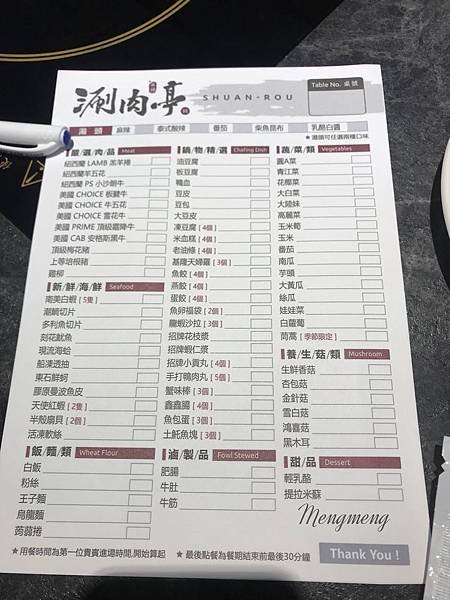 涮肉亭
SHUAN-ROU
Table No. 桌號
湯頭 麻辣 泰式酸辣 番茄 柴魚昆布 乳酪白醬
★湯頭可任選兩種口味
嚴/選/肉/品 Meat
紐西蘭 LAMB 羔羊捲
紐西蘭羊五花
紐西蘭 PS 小沙朗牛
美國 CHOICE 板腱牛
美國 CHOICE 牛五花
美國 CHOICE 雪花牛
美國 PRIME 頂級霜降牛
美國 CAB 安格斯黑牛
頂級梅花豬
上等培根豬
雞柳
新/鮮/海/鮮 Seafood
南美白蝦 [5隻]
潮鯛切片
多利魚切片
刻花魷魚
現流海蛤
船凍透抽
東石鮮蚵
膠原曼波魚皮
天使紅蝦 [2隻]
半殼扇貝 [2個]
活凍軟絲
飯/麵/類 Wheat Flour
白飯
粉絲
王子麵
烏龍麵
蒟蒻捲
鍋/物/精/選 Chafing Dish
油豆腐
板豆腐
鴨血
豆皮
豆包
大豆皮
凍豆腐 [4個]
米血糕 [4個]
老油條 [4個]
基隆天婦羅 [3個]
魚餃 [4個]
燕餃 [4個]
蛋餃 [4個]
魚卵福袋 [2個]
龍蝦沙拉 [3個]
招牌花枝漿
招牌蝦仁漿
招牌小貢丸 [4個]
手打鴨肉丸 [5個]
蟹味棒 [3個]
鑫鑫腸 [4個]
魚包蛋 [3個]
土魠魚塊 [3個]
滷/製/品 Fowl Stewed
肥腸
牛肚
牛筋
蔬/菜/類 Vegetables
圓A菜
青江菜
花椰菜
大白菜
大陸妹
高麗菜
玉米筍
玉米
番茄
南瓜
芋頭
大黃瓜
絲瓜
娃娃菜
白蘿蔔
茼蒿 [季節限定]
養/生/菇/類 Mushroom
生鮮香菇
杏包菇
金針菇
雪白菇
鴻喜菇
黑木耳
甜/品 Dessert
輕乳酪
提拉米蘇
Mengmeng
★用餐時間為第一位貴賓進場時間,開始算起 ★最後點餐為餐期結束前最後30分鐘
Thank You !